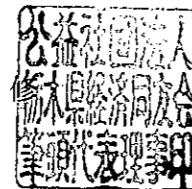 公益社団法人
栃木県経済同友会
筆頭代表理事印